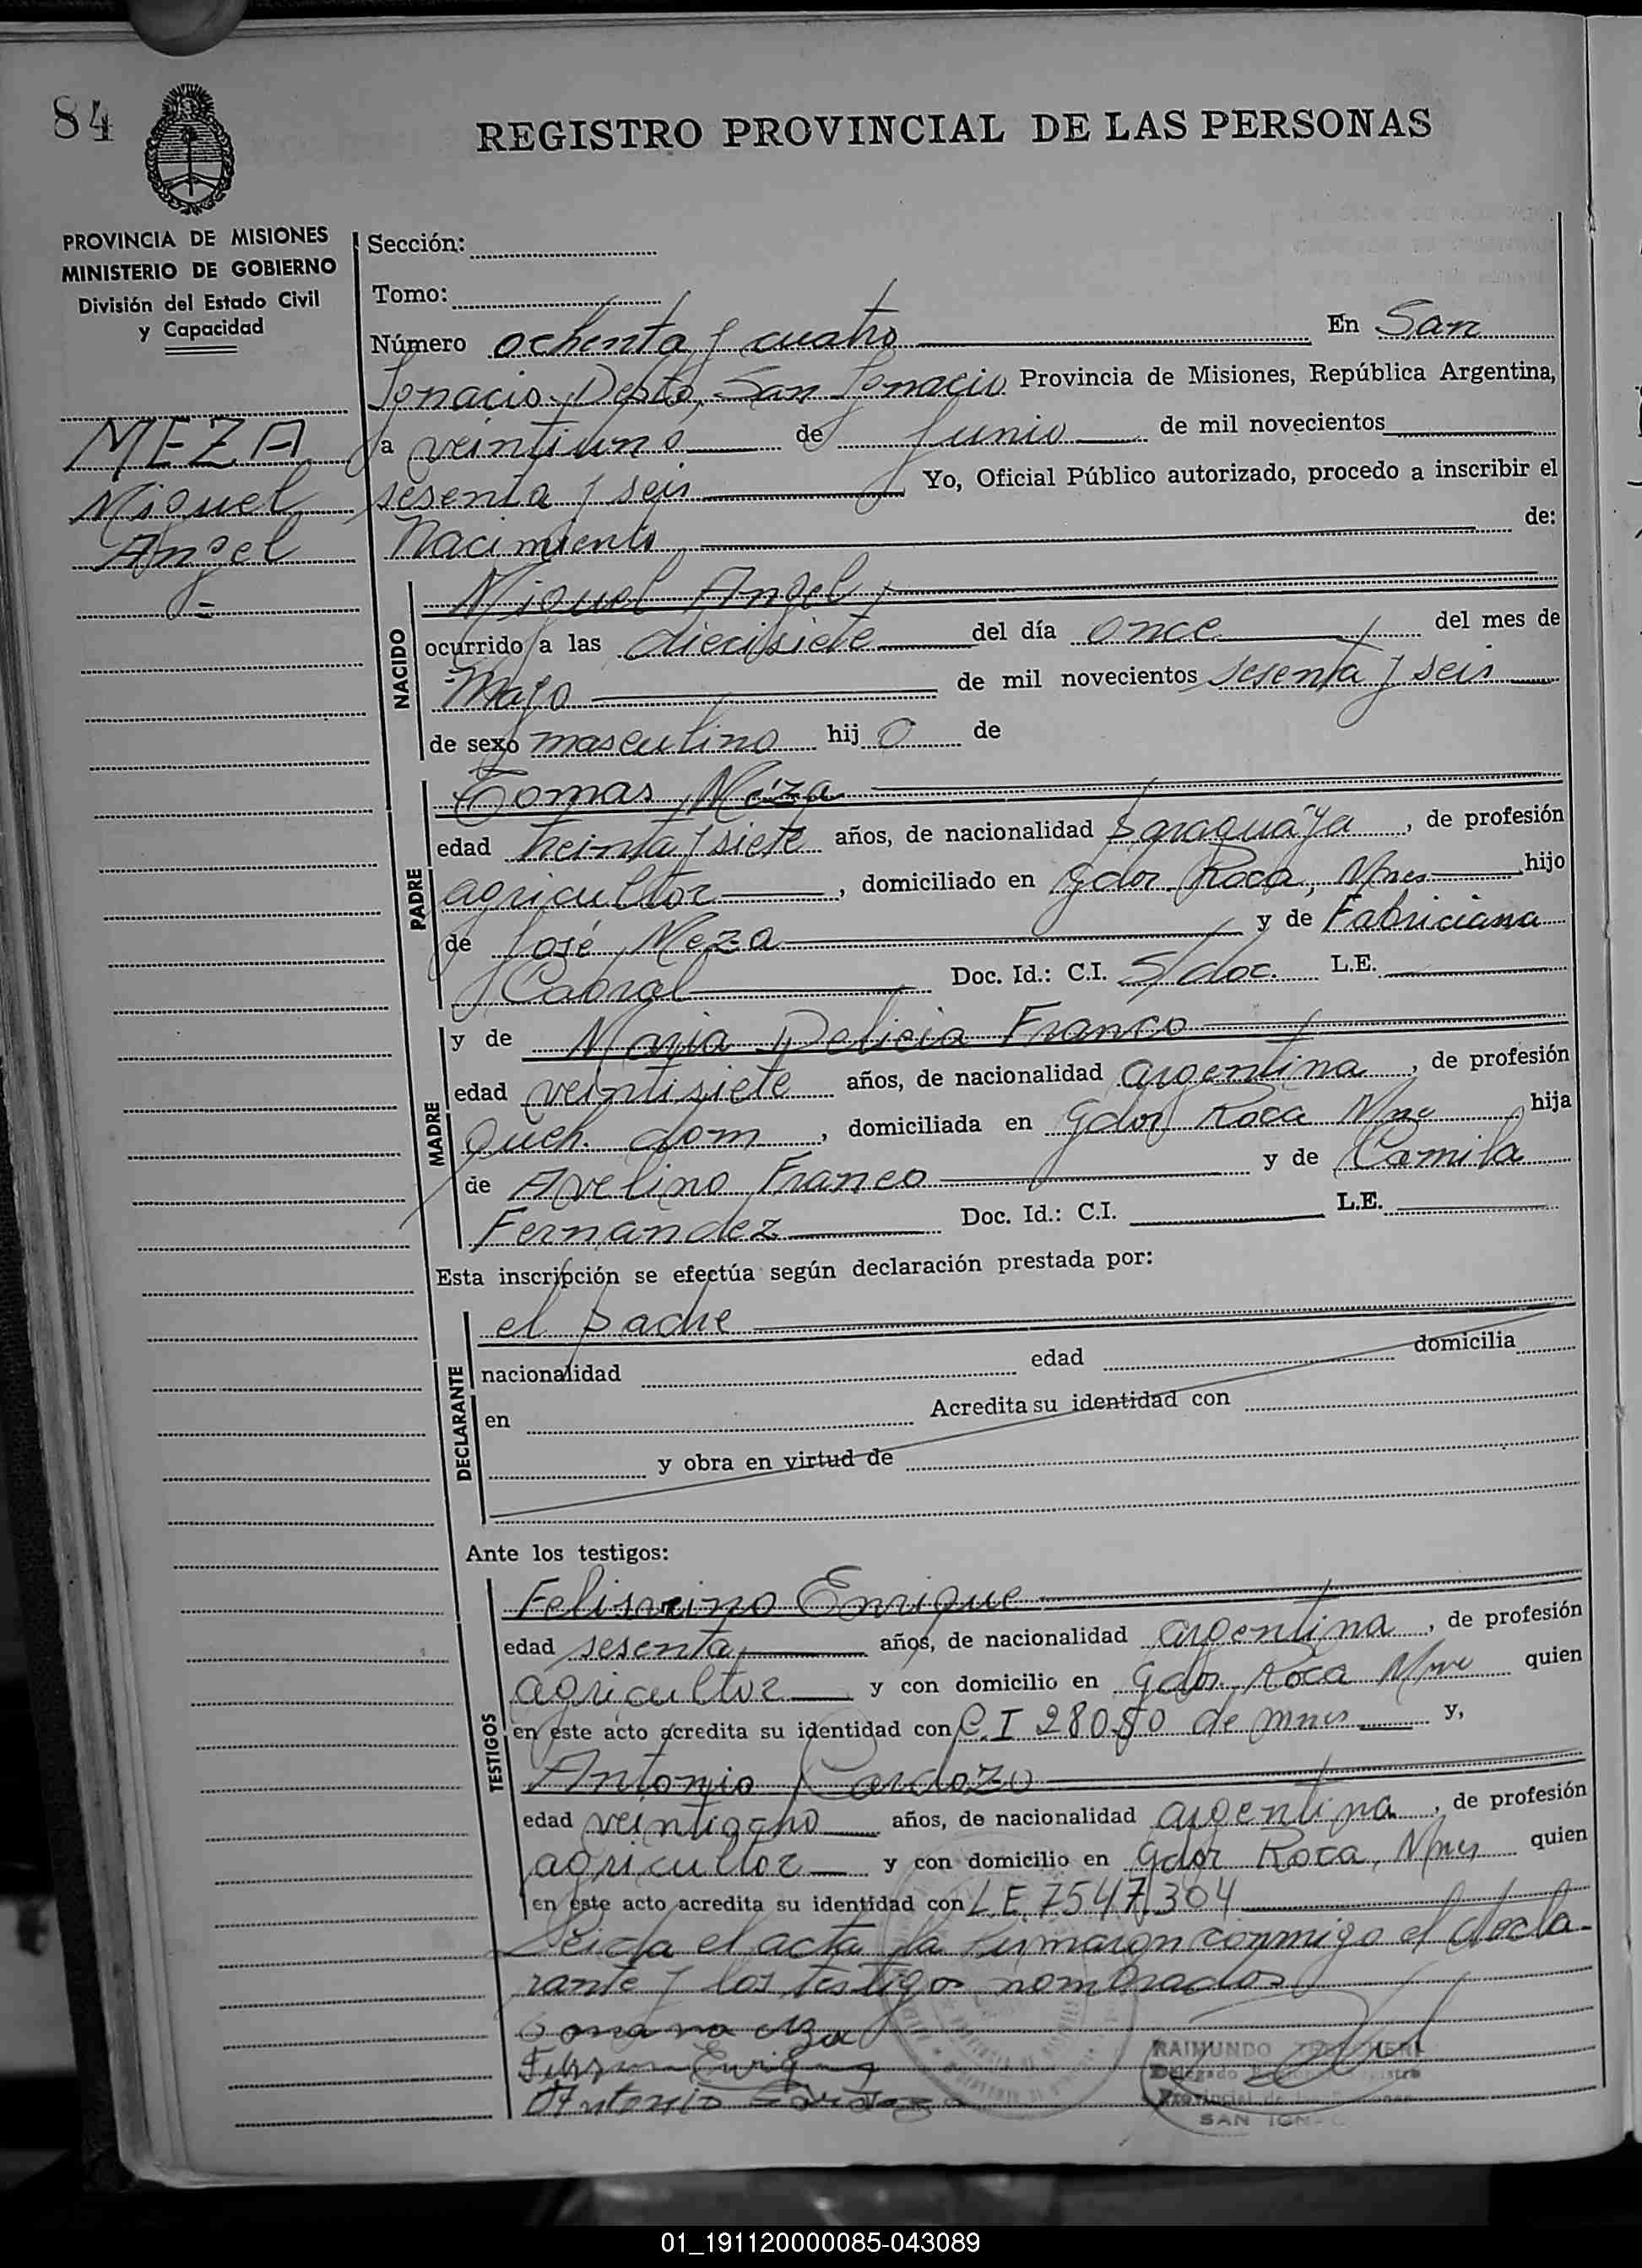 84
REGISTRO PROVINCIAL DE LAS PERSONAS
PROVINCIA DE MISIONES
MINISTERIO DE GOBIERNO
División del Estado Civil
y Capacidad
MEZA
Miguel
Angel
Sección:
Tomo:
Número ochenta y cuatro En San
Ignacio, Depto, San Ignacio Provincia de Misiones, República Argentina,
a veintiuno de Junio de mil novecientos
sesenta y seis Yo, Oficial Público autorizado, procedo a inscribir el
Nacimiento de:
NACIDO
Miguel Angel,
ocurrido a las diecisiete del día once del mes de
Mayo de mil novecientos sesenta y seis
de sexo masculino hij o de
PADRE
Tomas Meza
edad treinta y siete años, de nacionalidad paraguaya, de profesión
agricultor, domiciliado en Gdor. Roca, Mnes hijo
de José Meza y de Fabriciana
Cabral Doc. Id.: C.I. S/doc. L.E.
MADRE
y de Maria Delicia Franco
edad veintisiete años, de nacionalidad argentina, de profesión
Queh. dom, domiciliada en Gdor Roca Mnes hija
de Avelino Franco y de Camila
Fernandez Doc. Id.: C.I. L.E.
Esta inscripción se efectúa según declaración prestada por:
DECLARANTE
el padre
nacionalidad edad domicilia
en Acredita su identidad con
y obra en virtud de
Ante los testigos:
TESTIGOS
Enrique
edad sesenta, años, de nacionalidad argentina, de profesión
agricultor y con domicilio en Gdor. Roca quien
en este acto acredita su identidad con C.I 28080 de mnes y,
Antonio Cardozo
edad veintiocho años, de nacionalidad argentina, de profesión
agricultor y con domicilio en Gdor Roca, Mnes quien
en este acto acredita su identidad con L.E. 7547.304
Leida el acta la firmaron conmigo el decla-
rante y los testigos nombrados
Antonio
RAIMUNDO
Delegado
Provincial de las Personas
SAN IGN
01_191120000085-043089